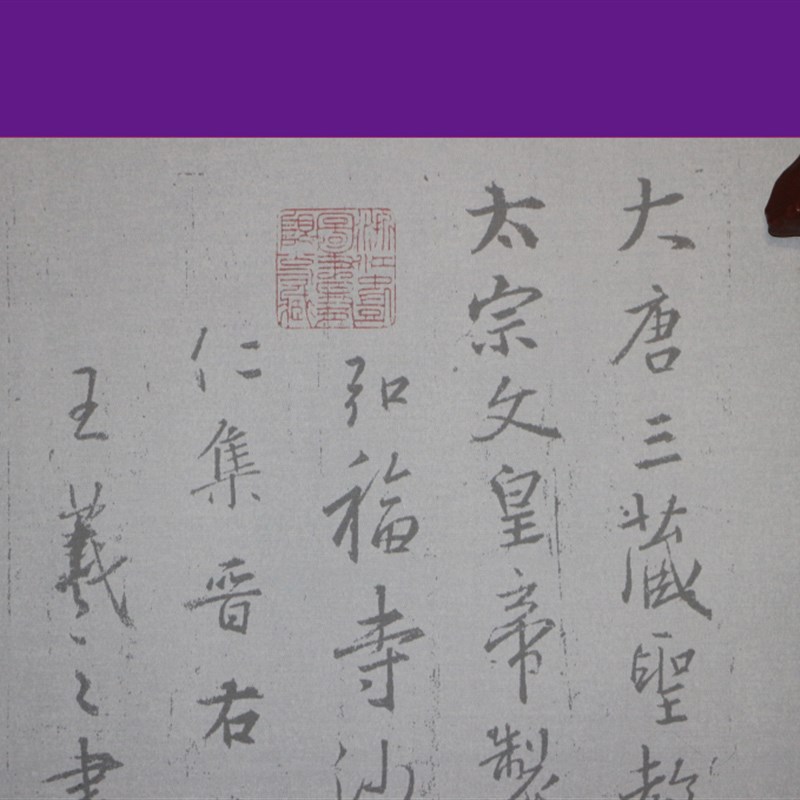 大唐三藏聖教
太宗文皇帝製
弘福寺沙
仁集晋右
王羲之書